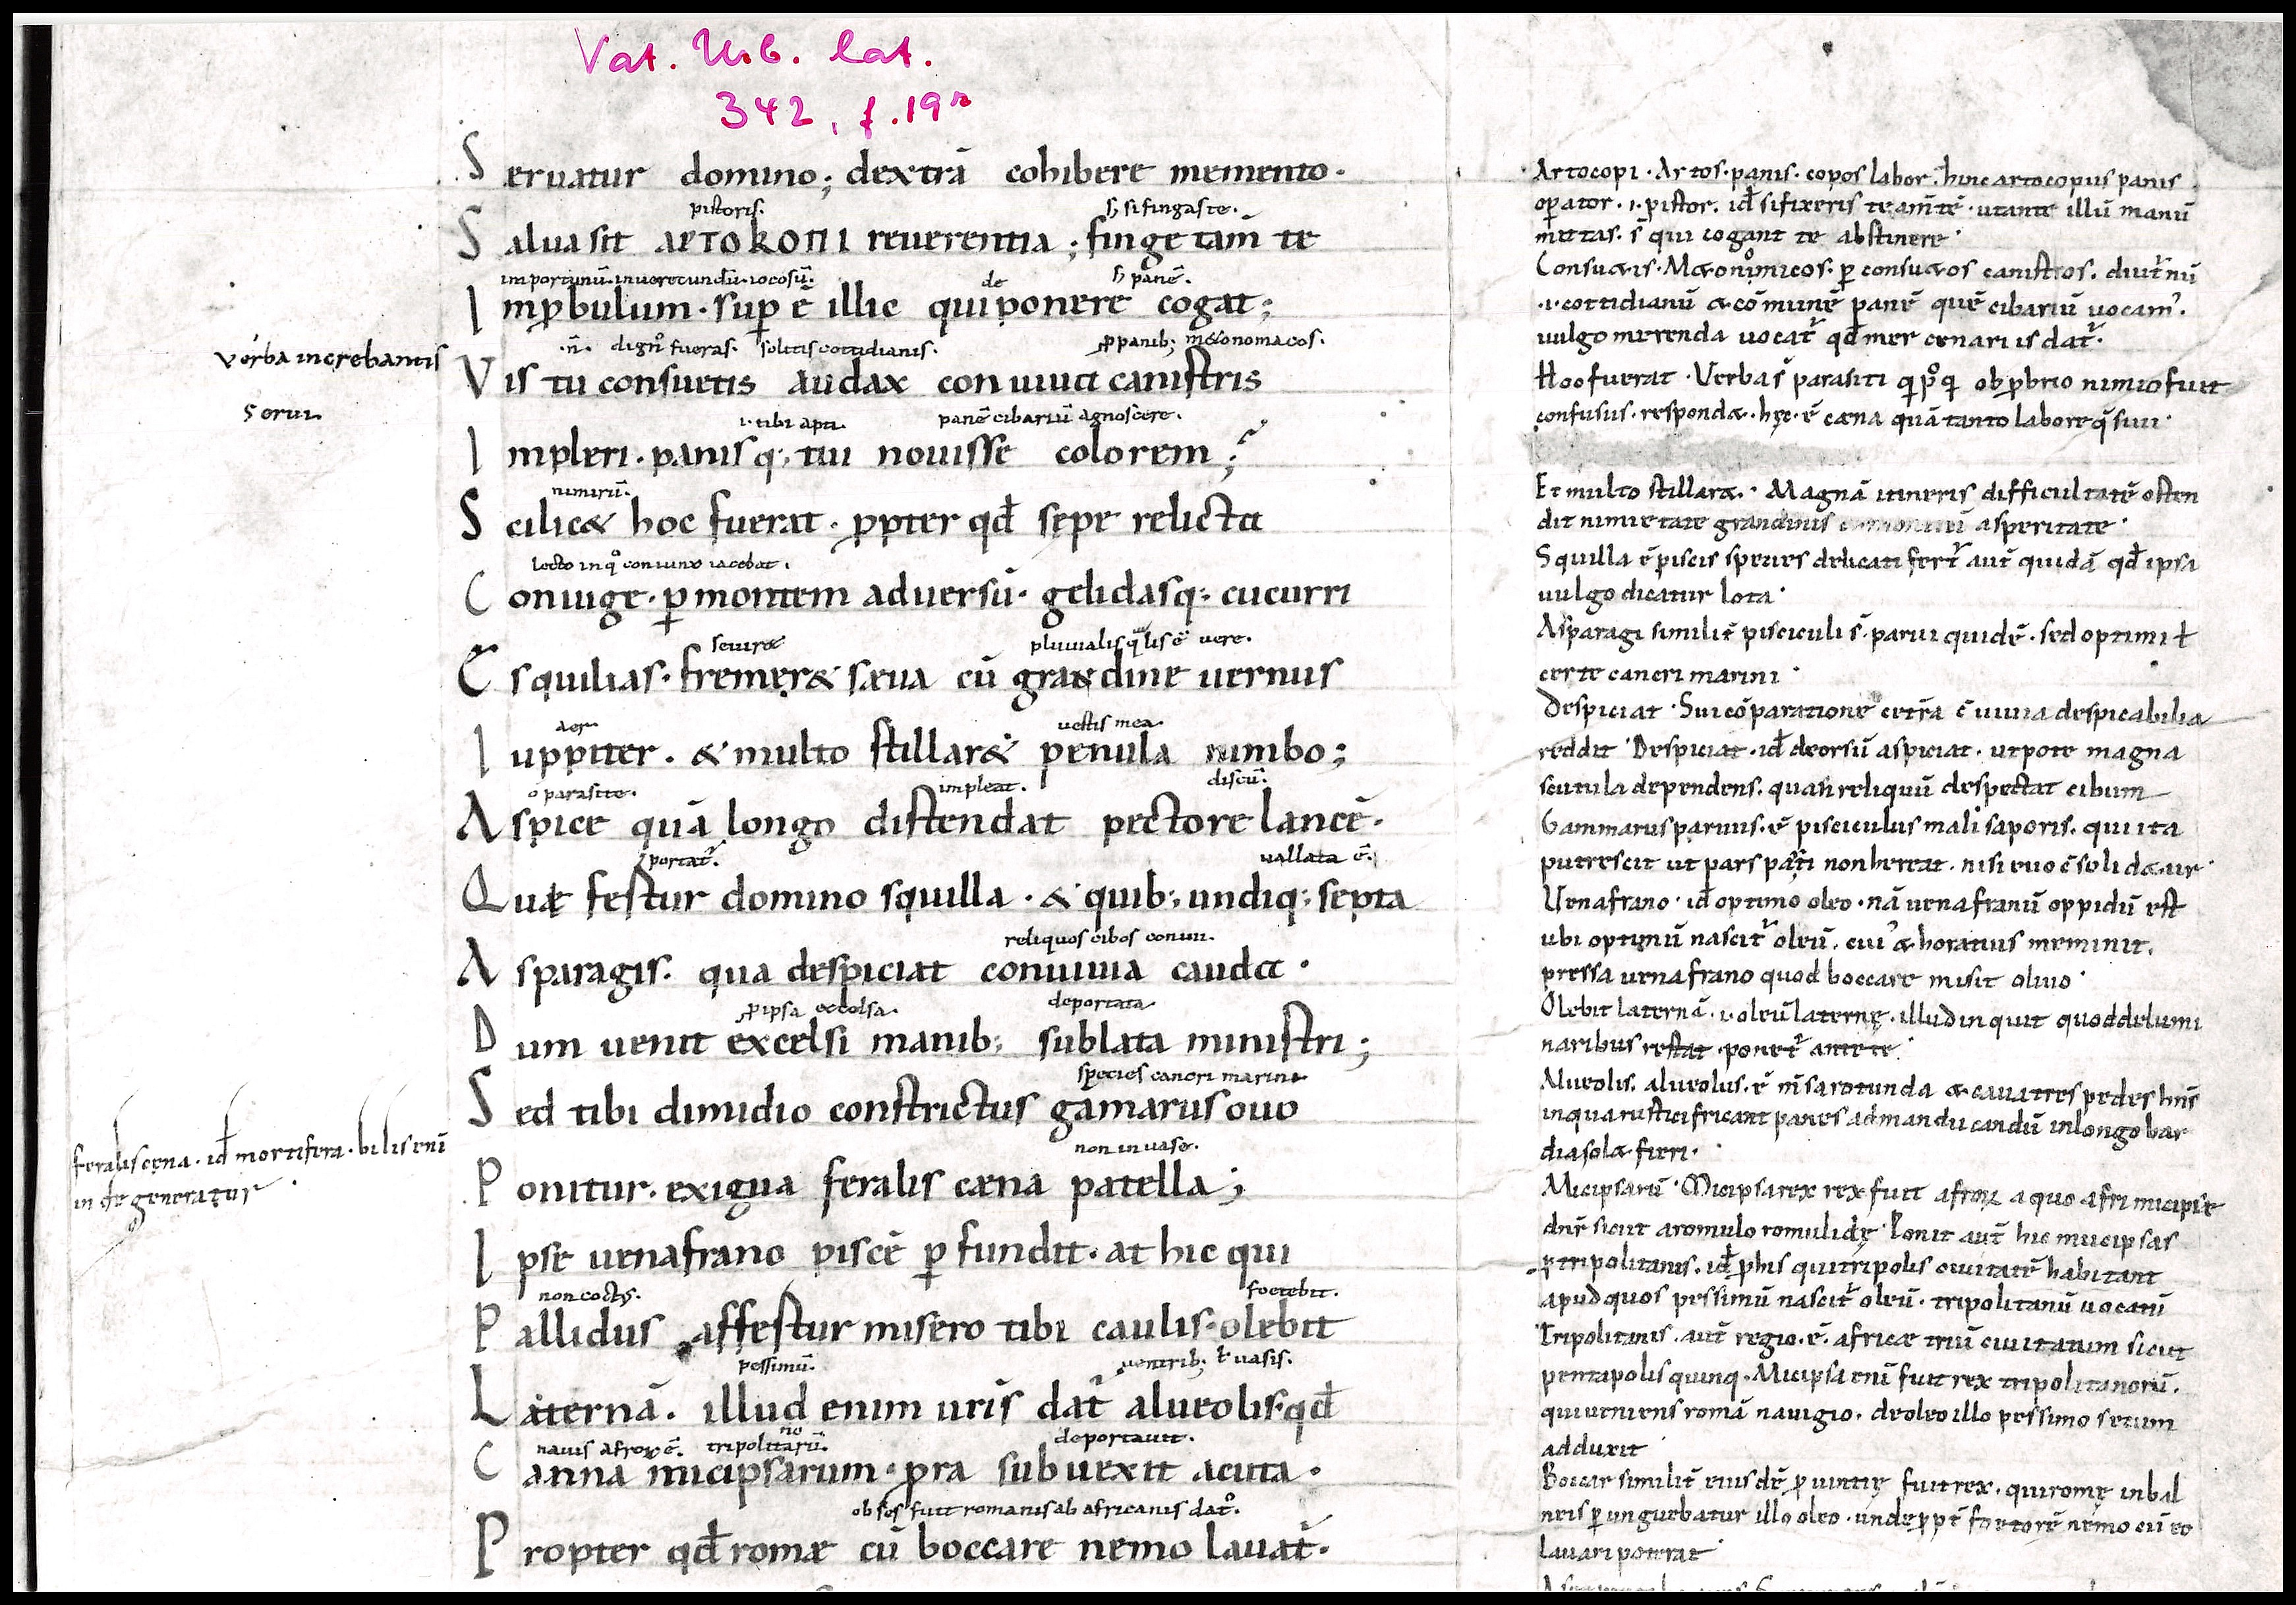 Vat. Urb. lat.
342, f. 19r
Seruatur domino; dextrā cohibere memento.
pistoris. si fingas te.
Salua sit ARTOKOΠI reuerentia; finge tam̄ te
importunū. inuerecundū. iocosū. de panē.
Inp̱bulum. sup̱ ē illic qui ponere cogat;
.n̄. dignꝰ fueras. solitis cottidianis. p̱panib; mæonomacos.
Vis tu consuetis audax conuiua canistris
.i. tibi apti. panē cibariū agnoscere.
Impleri. panisq; tui nouisse colorem;
nimirū.
Scilic& hoc fuerat. ꝓpter qđ sepe relicta
lecto in qͦ coniunx iacebat.
Coniuge. p̱ montem aduersū. gelidasq; cucurri
seuiræ pluuialis qualis ē uere.
Esquilias. fremer& sæua cū grandine uernus
aer uestis mea.
Iuppiter. & multo stillar& penula nimbo;
o parasite. impleat. discū.
Aspice quā longo distendat pectore lancē.
portat᷑. uallata ē.
Quæ festur domino squilla. & quib; undiq; septa
reliquos cibos conuiu.
Asparagis. qua despiciat conuiuia cauda.
p̱ ipsa excelsa. deportata
Dum uenit excelsi manib; sublata ministri;
species cancri marini
Sed tibi dimidio constrictus gamarus ouo
non in uase.
Ponitur. exigua feralis cæna patella;
Ipse uenafrano piscē p̱fundit. at hic qui
non coctꝰ. foetebit.
Pallidus affestur misero tibi caulis. olebit
pessimū. uentrib; ł uasis.
Laternā. illud enim uris̄ dat᷑ alueolis. qđ
nauis afroꝝ ē. tripolitanorū. deportauit.
Canna micipsarum. pra subuexit acuta.
obses fuit romanis ab africanis datꝰ.
Propter qđ romæ cū boccare nemo lauat᷑.
Verba increbantis
serui.
feralis cęna. iđ mortifera. bilis enī
inde generatur
Artocopi. Artos. panis. copos labor. hinc artocopus panis
op̱ator. .i. pistor. iđ si fixeris te am̄tē. utante illū manū
mittas. s̄ qui cogant te abstinere
Consuæis. Mæonomicos. p̱ consuæos canistros. diut᷑nū
.i. cottidianū & cōmunē panē quē cibariū uocamꝰ.
uulgo merenda uocat᷑ qđ mercenariis dat᷑.
Hoc fuerat. Verba s̄ parasiti qͥ pͦqͣ obp̱brio nimio fuit
confusus. respondæ. hęc. ē cæna quā tanto labore q̄siui
Et multo stillaræ. Magnā itineris difficultatē osten
dit nimietate grandinis asperitate
Squilla ē piscis species delicati fert᷑ aut̄ quidā qđ ipsa
uulgo dicatur lota
Asparagi similit̄ pisciculi s̄ parui quidē. sed optimi ł
certe cancri marini
Despiciat. Sui cōparatione cet᷑a cuiuia despicabilia
reddit Despiciat. iđ deorsū aspiciat. utpote magna
scutula dependens. quasi reliquū despectat cibum
Gammarus paruus. ē pisciculus mali saporis. qui ita
putrescit ut pars parti non hereat. nisi euo c̄solidæur
Uenafrano. iđ optimo oleo. nā uenafranū oppidū est
ubi optimū nascit᷑ oleū. cuiꝰ & horatius meminit.
pressa uenafrano quod boccare misit oliuo
Olebit laternā. .i. oleū laternę. illud inquit quod de lumi
naribus restat. ponet᷑ ante te.
Alueolis. alueolus. ē m̄sa rotunda & caua tres pedes hn̄s
in qua rustici fricant panes ad manducandū in longobar
dia solæ fieri.
Micipsarū. Micipsa rex rex fuit afroꝝ a quo afri micipse
dn̄r sicut a romulo romulidę. Ponit aut̄ hic micipsas
p̱ tripolitanis. iđ p̱ his qui tripolis ciuitatē habitant
apud quos pessimū nascit᷑ oleū. tripolitanū uocatū
Tripolitanis. aut̄ regio. ē. africæ triū ciuitatum sicut
pentapolis quinq. Micipsa enī fuit rex tripolitanorū.
qui ueniens romā nauigio. de oleo illo pessimo secum
adduxit
Boccar similit̄ eiusdē p̱uintię fuit rex. qui romę in bal
neis p̱unguebatur illo oleo. unde p̱pt̄ foetorē nemo cū eo
lauari poterat